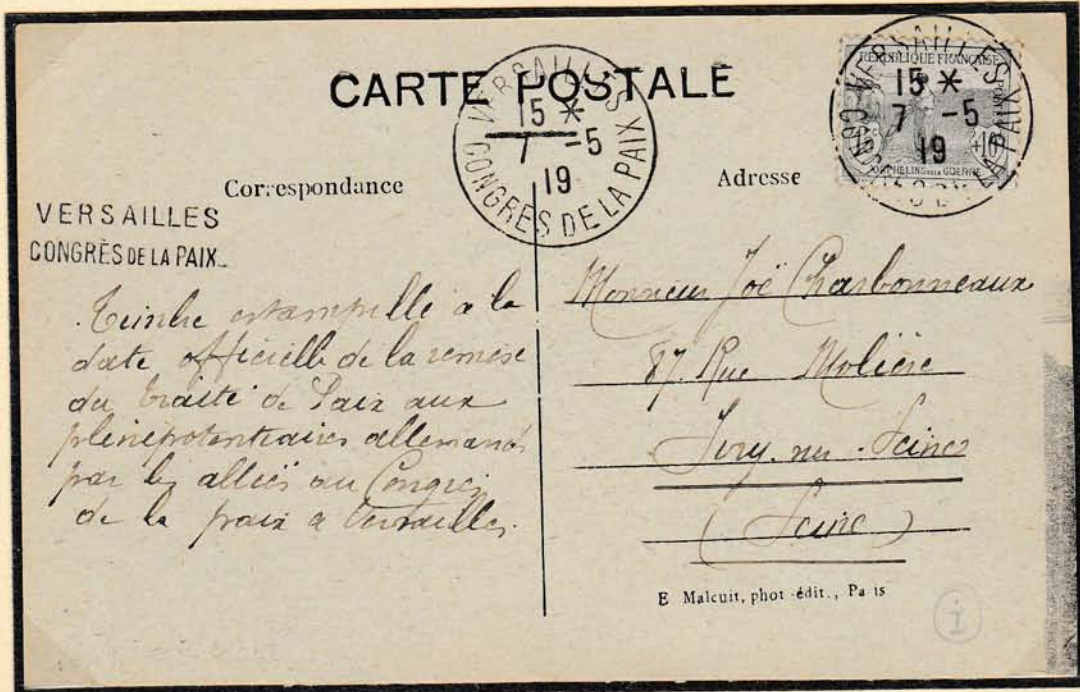 CARTE POSTALE
VERSAILLES
15 *
7 -5
19
CONGRES DE LA PAIX
VERSAILLES
15 *
7 -5
19
CONGRES DE LA PAIX
REPUBLIQUE FRANÇAISE
POSTES
+10
ORPHELINS DE LA GUERRE
Correspondance
Adresse
VERSAILLES
CONGRÈS DE LA PAIX
Timbre estampillé à la
date officielle de la remise
du Traité de Paix aux
plénipotentiaires allemands
par les alliés au Congrès
de la paix à Versailles.
Monsieur Joë Charbonneaux
87. Rue Molière
Ivry-sur-Seine
(Seine)
E Malcuit, phot-édit., Paris
i